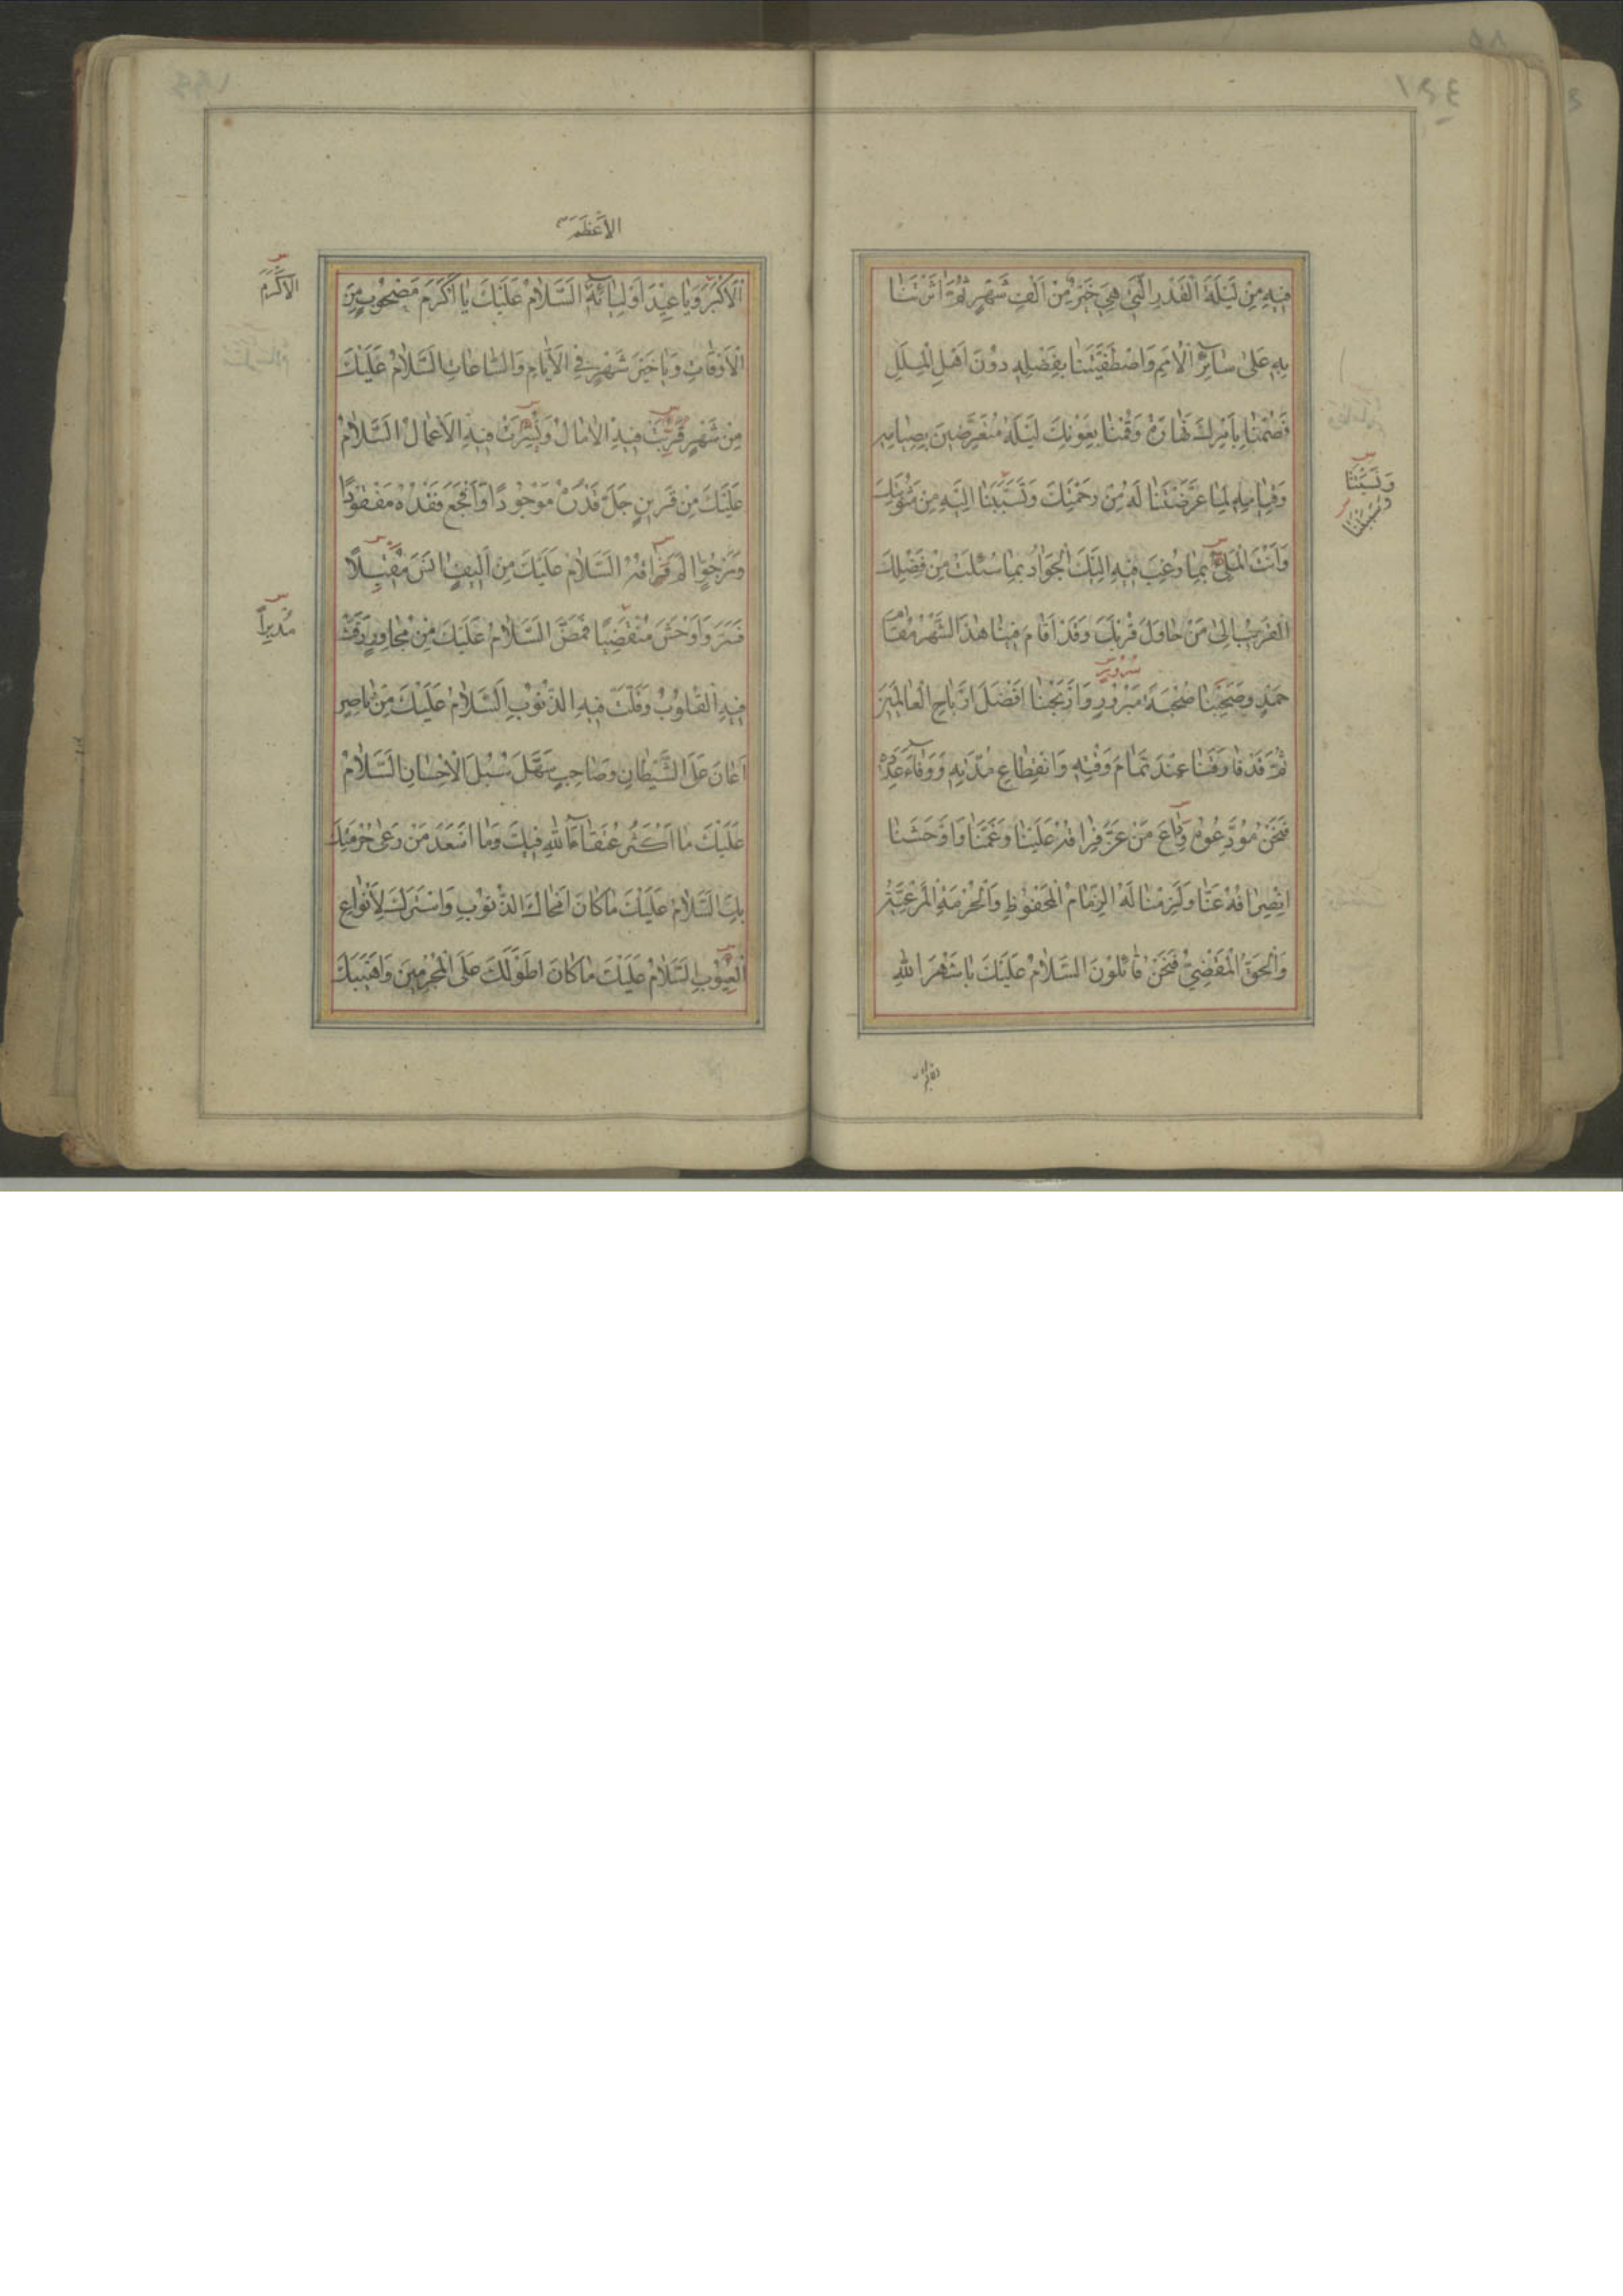 ١٤٤
فِيهِ مِنْ لَيْلَةِ الْقَدْرِ الَّتِي هِيَ خَيْرٌ مِنْ أَلْفِ شَهْرٍ ثُمَّ اثَرْتَنَا
بِهِ عَلَى سَائِرِ الْأُمَمِ وَاصْطَفَيْتَنَا بِفَضْلِهِ دُونَ أَهْلِ الْمِلَلِ
فَصُمْنَا بِأَمْرِكَ نَهَارَهُ وَقُمْنَا بِعَوْنِكَ لَيْلَهُ مُتَعَرِّضِينَ بِصِيَامِهِ
وَقِيَامِهِ لِمَا عَرَّضْتَنَا لَهُ مِنْ رَحْمَتِكَ وَتَسَبَّبْنَا إِلَيْهِ مِنْ مَثُوبَتِكَ
وَنَسَبْتَنَا
وَأَنْتَ الْمَلِيءُ بِمَا رُغِبَ فِيهِ إِلَيْكَ الْجَوَادُ بِمَا سُئِلْتَ مِنْ فَضْلِكَ
الْقَرِيبُ إِلَى مَنْ حَاوَلَ قُرْبَكَ وَقَدْ أَقَامَ فِينَا هٰذَا الشَّهْرُ مُقَامَ
سُرُورٍ
حَمْدٍ وَصَحِبَنَا صُحْبَةَ مَبْرُورٍ وَأَرْبَحَنَا أَفْضَلَ أَرْبَاحِ الْعَالَمِينَ
ثُمَّ قَدْ فَارَقَنَا عِنْدَ تَمَامِ وَقْتِهِ وَانْقِطَاعِ مُدَّتِهِ وَوَفَاءِ عَدَدِهِ
فَنَحْنُ مُوَدِّعُوهُ وِدَاعَ مَنْ عَزَّ فِرَاقُهُ عَلَيْنَا وَغَمَّنَا وَأَوْحَشَنَا
انْصِرَافُهُ عَنَّا وَلَزِمَنَا لَهُ الذِّمَامُ الْمَحْفُوظُ وَالْحُرْمَةُ الْمَرْعِيَّةُ
وَالْحَقُّ الْمَقْضِيُّ فَنَحْنُ قَائِلُونَ السَّلَامُ عَلَيْكَ يَا شَهْرَ اللهِ
الْأَعْظَمَ
الْأَكْبَرَ وَيَا عِيدَ أَوْلِيَائِهِ السَّلَامُ عَلَيْكَ يَا أَكْرَمَ مَصْحُوبٍ مِنَ
الْأَكْرَمَ
الْأَوْقَاتِ وَيَا خَيْرَ شَهْرٍ فِي الْأَيَّامِ وَالسَّاعَاتِ السَّلَامُ عَلَيْكَ
مِنْ شَهْرٍ قَرُبَتْ فِيهِ الْآمَالُ وَنُشِرَتْ فِيهِ الْأَعْمَالُ السَّلَامُ
عَلَيْكَ مِنْ قَرِينٍ جَلَّ قَدْرُهُ مَوْجُودًا وَأَفْجَعَ فَقْدُهُ مَفْقُودًا
وَمَرْجُوٍّ الَمَ فِرَاقُهُ السَّلَامُ عَلَيْكَ مِنْ أَلِيفٍ انَسَ مُقْبِلًا
فَسَرَّ وَأَوْحَشَ مُنْقَضِيًا فَمَضَّ السَّلَامُ عَلَيْكَ مِنْ مُجَاوِرٍ رَقَّتْ
مُدْبِرًا
فِيهِ الْقُلُوبُ وَقَلَّتْ فِيهِ الذُّنُوبُ السَّلَامُ عَلَيْكَ مِنْ نَاصِرٍ
أَعَانَ عَلَى الشَّيْطَانِ وَصَاحِبٍ سَهَّلَ سُبُلَ الْإِحْسَانِ السَّلَامُ
عَلَيْكَ مَا أَكْثَرَ عُتَقَاءَ اللهِ فِيكَ وَمَا أَسْعَدَ مَنْ رَعَى حُرْمَتَكَ
بِكَ السَّلَامُ عَلَيْكَ مَا كَانَ أَمْحَاكَ لِلذُّنُوبِ وَأَسْتَرَكَ لِأَنْوَاعِ
الْعُيُوبِ السَّلَامُ عَلَيْكَ مَا كَانَ أَطْوَلَكَ عَلَى الْمُجْرِمِينَ وَأَهْيَبَكَ